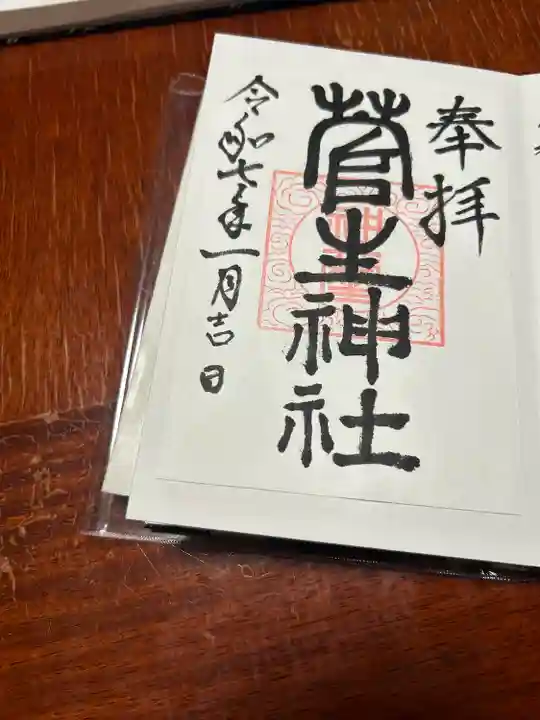 奉拝
菅生神社
令和七年一月吉日